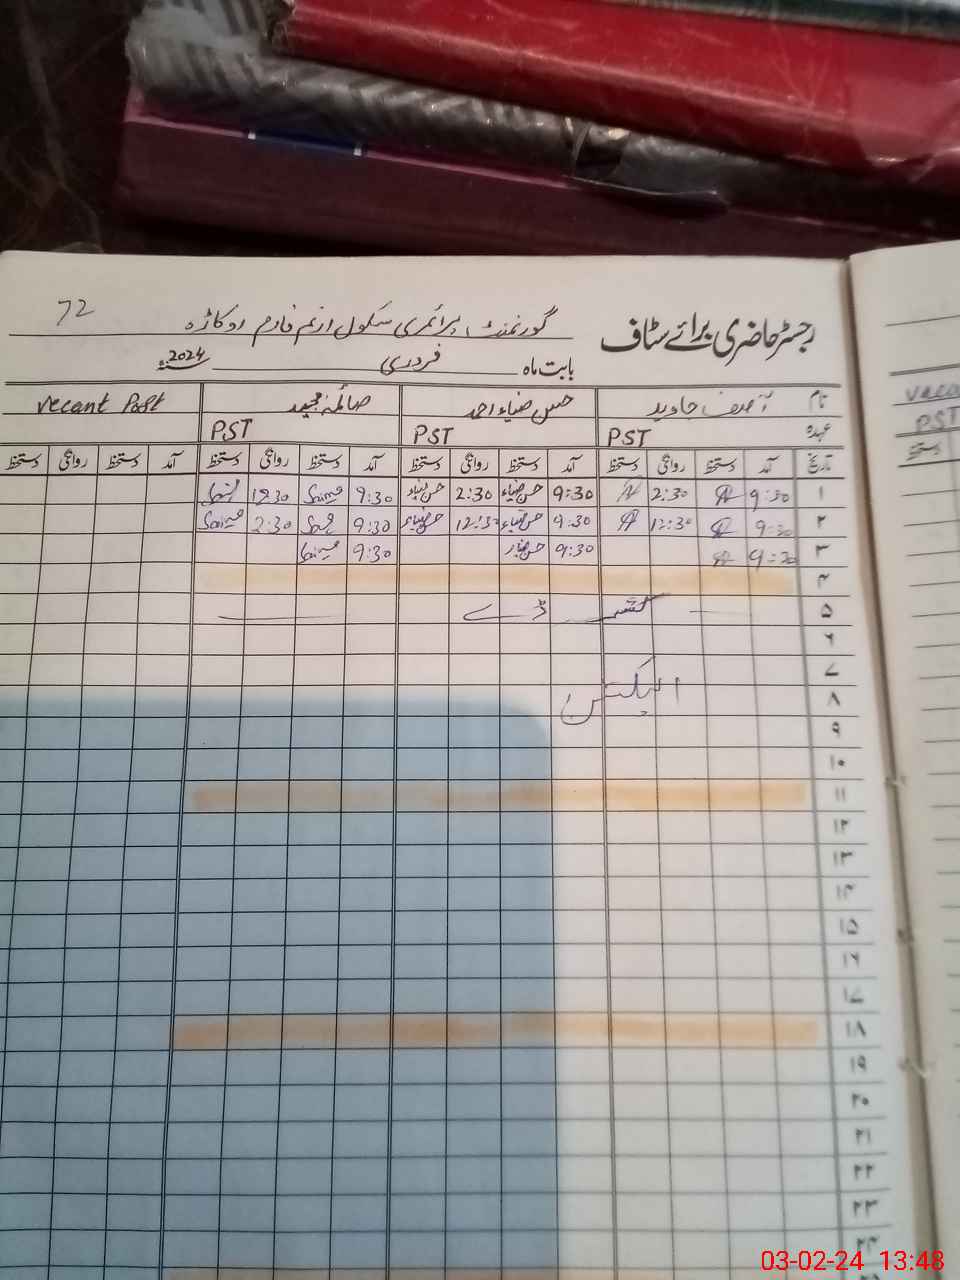 72
رجسٹر حاضری برائے سٹاف گورنمنٹ پرائمری سکول فارم اوکاڑہ
بابت ماہ فروری 2024
نام آصف جاوید حسن ضیاء احمد صائمہ مجید vecant Post
عہدہ PST PST PST
تاریخ آمد دستخط روانگی دستخط آمد دستخط روانگی دستخط آمد دستخط روانگی دستخط آمد دستخط روانگی دستخط
۱ 9:30 2:30 9:30 حسن ضیاء 2:30 حسن ضیاء 9:30 Saima 12:30
۲ 9:30 12:30 9:30 حسن ضیاء 12:30 حسن ضیاء 9:30 2:30 Saima
۳ 9:30 9:30 حسن ضیاء 9:30 Saima
۴
۵ کشمیر ڈے
۶
۷
۸ الیکشن
۹
۱۰
۱۱
۱۲
۱۳
۱۴
۱۵
۱۶
۱۷
۱۸
۱۹
۲۰
۲۱
۲۲
۲۳
۲۴
PST
دستخط
03-02-24 13:48